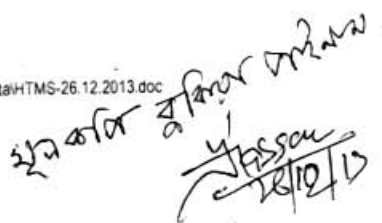 ta\HTMS-26.12.2013.doc
মূলকপি বুঝিয়া পাইলাম
26/12/13